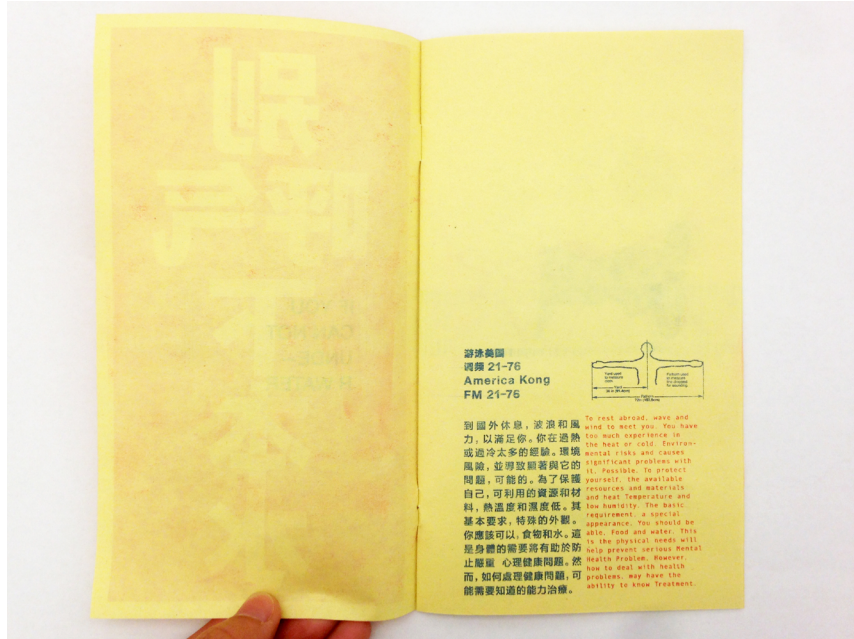 别
呼气
下
水
游泳美国
调频 21-76
America Kong
FM 21-76
到國外休息，波浪和風
力，以滿足你。你在過熱
或過冷太多的經驗。環境
風險，並導致顯著與它的
問題，可能的。為了保護
自己，可利用的資源和材
料，熱溫度和濕度低。其
基本要求，特殊的外觀。
你應該可以，食物和水。這
是身體的需要將有助於防
止嚴重 心理健康問題。然
而，如何處理健康問題，可
能需要知道的能力治療。
To rest abroad, wave and
wind to meet you. You have
too much experience in
the heat or cold. Environ-
mental risks and causes
significant problems with
it. Possible. To protect
yourself, the available
resources and materials
and heat Temperature and
low humidity. The basic
requirement, a special
appearance. You should be
able. Food and water. This
is the physical needs will
help prevent serious Mental
Health Problem. However,
how to deal with health
problems, may have the
ability to know Treatment.